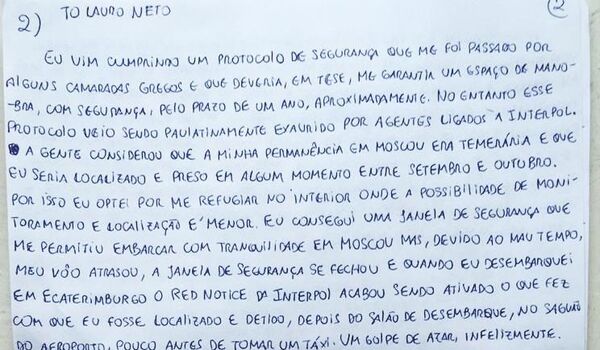 2) TO LAURO NETO 2
EU VIM CUMPRINDO UM PROTOCOLO DE SEGURANÇA QUE ME FOI PASSADO POR
ALGUNS CAMARADAS GREGOS E QUE DEVERIA, EM TESE, ME GARANTIA UM ESPAÇO DE MANO-
BRA, COM SEGURANÇA, PELO PRAZO DE UM ANO, APROXIMADAMENTE. NO ENTANTO ESSE
PROTOCOLO VEIO SENDO PAULATINAMENTE EXAURIDO POR AGENTES LIGADOS A INTERPOL.
A GENTE CONSIDEROU QUE A MINHA PERMANÊNCIA EM MOSCOU ERA TEMERÁRIA E QUE
EU SERIA LOCALIZADO E PRESO EM ALGUM MOMENTO ENTRE SETEMBRO E OUTUBRO.
POR ISSO EU OPTEI POR ME REFUGIAR NO INTERIOR ONDE A POSSIBILIDADE DE MONI-
TORAMENTO E LOCALIZAÇÃO É MENOR. EU CONSEGUI UMA JANELA DE SEGURANÇA QUE
ME PERMITIU EMBARCAR COM TRANQUILIDADE EM MOSCOU MAS, DEVIDO AO MAU TEMPO,
MEU VÔO ATRASOU, A JANELA DE SEGURANÇA SE FECHOU E QUANDO EU DESEMBARQUEI
EM ECATERIMBURGO O RED NOTICE DA INTERPOL ACABOU SENDO ATIVADO O QUE FEZ
COM QUE EU FOSSE LOCALIZADO E DETIDO, DEPOIS DO SALÃO DE DESEMBARQUE, NO SAGUÃO
DO AEROPORTO, POUCO ANTES DE TOMAR UM TÁXI. UM GOLPE DE AZAR, INFELIZMENTE.